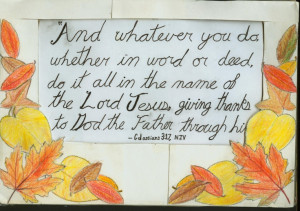 "And whatever you do
whether in word or deed,
do it all in the name of
the Lord Jesus, giving thanks
to God the Father through hi
- Colossians 3:17 NIV